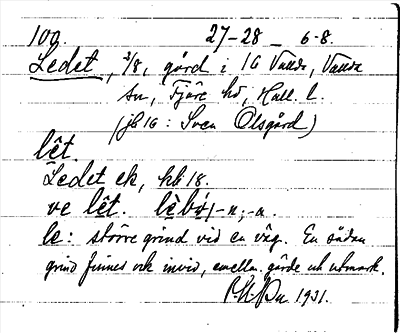 109. 27-28 - 6-8.
Ledet, 3/8, gård i 16 Valda, Valda
sn, Fjäre hd, Hall. l.
(jb 16: Sven Olsgård)
lêt.
Ledet ek, hb 18.
ve lêt. -n; -a.
le: större grind vid en väg. En sådan
grind finnes ock invid, emellan gärde och utmark.
1931.